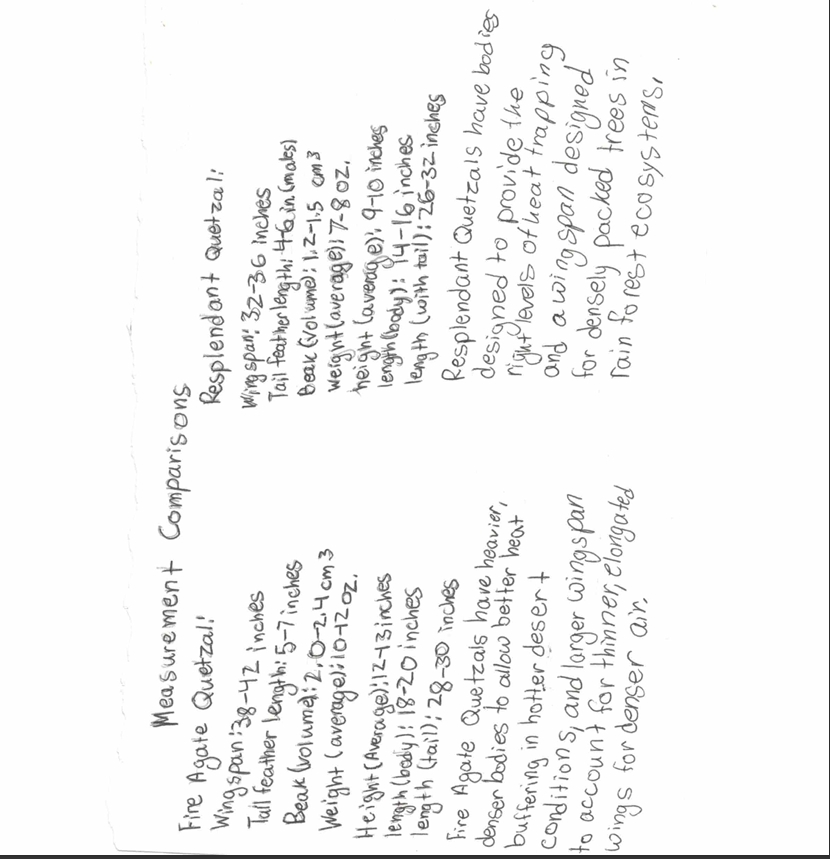 Measurement Comparisons
Fire Agate Quetzal:
Wingspan: 38-42 inches
Tail feather length: 5-7 inches
Beak (volume): 2.0-2.4 cm3
Weight (average): 10-12 oz.
Height (Average): 12-13 inches
length (body): 18-20 inches
length (tail): 28-30 inches
Fire Agate Quetzals have heavier,
denser bodies to allow better heat
buffering in hotter desert
conditions, and larger wingspan
to account for thinner, elongated
wings for denser air.
Resplendant Quetzal:
Wingspan: 32-36 inches
Tail feather length: 4-6 in (males)
Beak (volume): 1.2-1.5 cm3
Weight (average): 7-8 oz.
height (average): 9-10 inches
length (body): 14-16 inches
length (with tail): 26-32 inches
Resplendant Quetzals have bodies
designed to provide the
right levels of heat trapping
and a wingspan designed
for densely packed trees in
rain forest ecosystems.